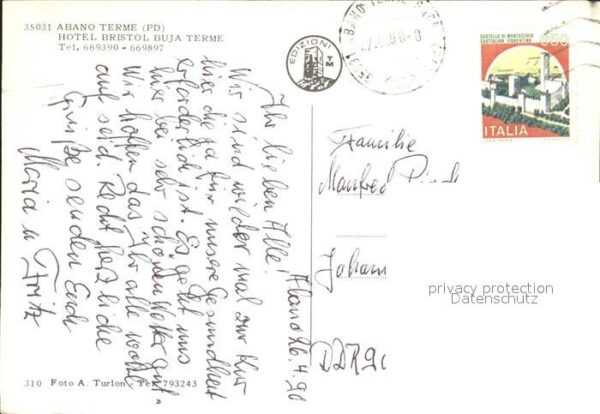 35031 ABANO TERME (PD)
HOTEL BRISTOL BUJA TERME
Tel. 669390 - 669897
EDIZIONI
TM
ABANO TERME
CASTELLO DI MONTECCHIO
CASTIGLION FIORENTINO
ITALIA
Abano 26.4.90
Ihr lieben Alle!
Wir sind wieder mal zur Kur
hier die ja für unsere Gesundheit
erforderlich ist. Es geht uns
hier bei sehr schönem Wetter gut.
Wir hoffen das Ihr alle wohl
auf seid. Recht herzliche
Grüße senden Euch
Maria u Fritz
Familie
Manfred
Johann
DDR 90
privacy protection
Datenschutz
310 Foto A. Turlon - Tel. 793243